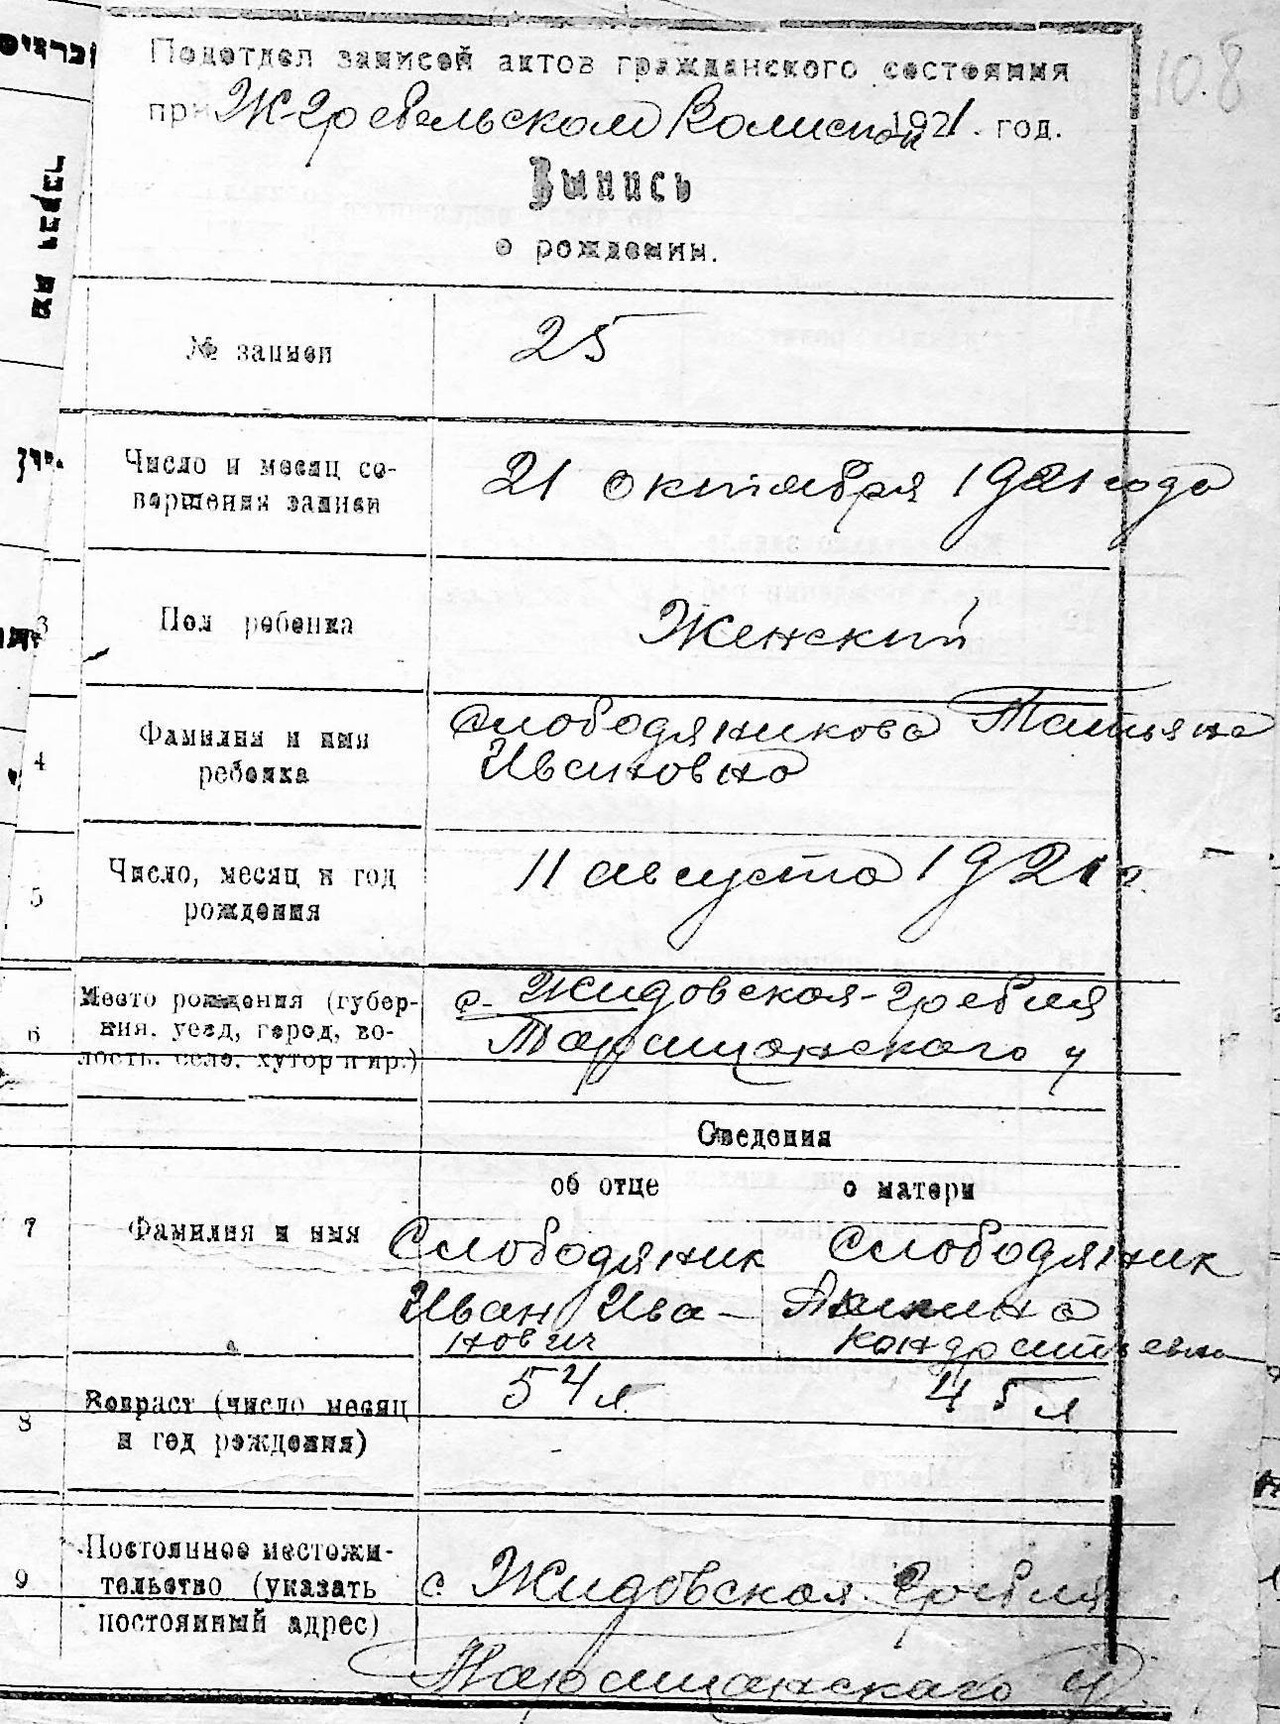 Подотдел записей актов гражданского состояния
при Ж-гребельском Волисп 1921. год.
10.8
Выпись
о рождении.
№ записи 25
Число и месяц со-
вершения записи 21 октября 1921 года
3 Пол ребенка Женский
4 Фамилия и имя
ребенка Слободяникова Татьяна
Ивановна
5 Число, месяц и год
рождения 11 августа 1921 г.
6 Место рождения (губер-
ния, уезд, город, во-
лость, село, хутор и пр.) с. Жидовская-гребля
Таращанского у
Сведения
об отце о матери
7 Фамилия и имя Слободяник Слободяник
Иван Ива-
нович Кондратьевна
8 Возраст (число месяц
и год рождения) 54 л. 45 л
9 Постоянное местожи-
тельство (указать
постоянный адрес) с. Жидовская Гребля
Таращанского у.